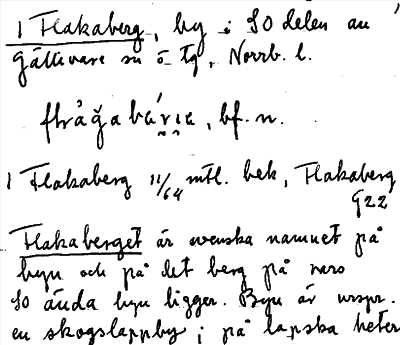 1 Flakaberg, by i SO delen av
Gällivare sn o tg, Norrb. l.
bf. n.
1 Flakaberg 11/64 mtl. bek, Flakaberg
G22
Flakaberget är svenska namnet på
byn och på det berg på vars
SO ända byn ligger. Byn är urspr.
en skogslappby; på lapska heter